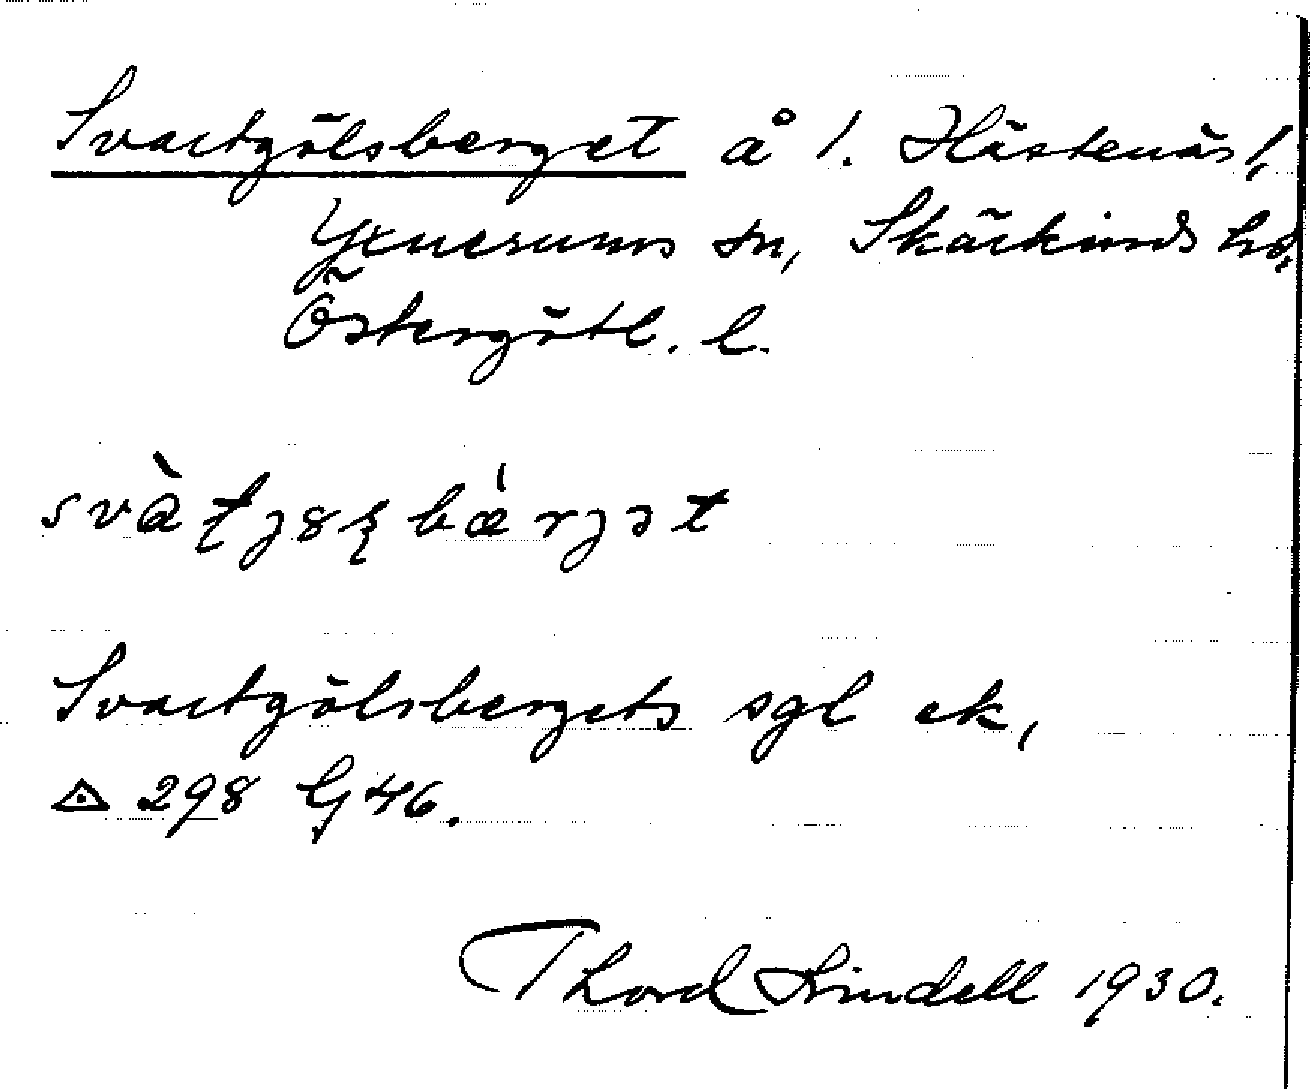 Svartgölsberget å 1. Hästenäs 1,
Yxnerums sn, Skärkinds hd,
Östergötl. l.
Svartgölsbergets sgl ek,
298 Gj 46.
Thord Lindell 1930.